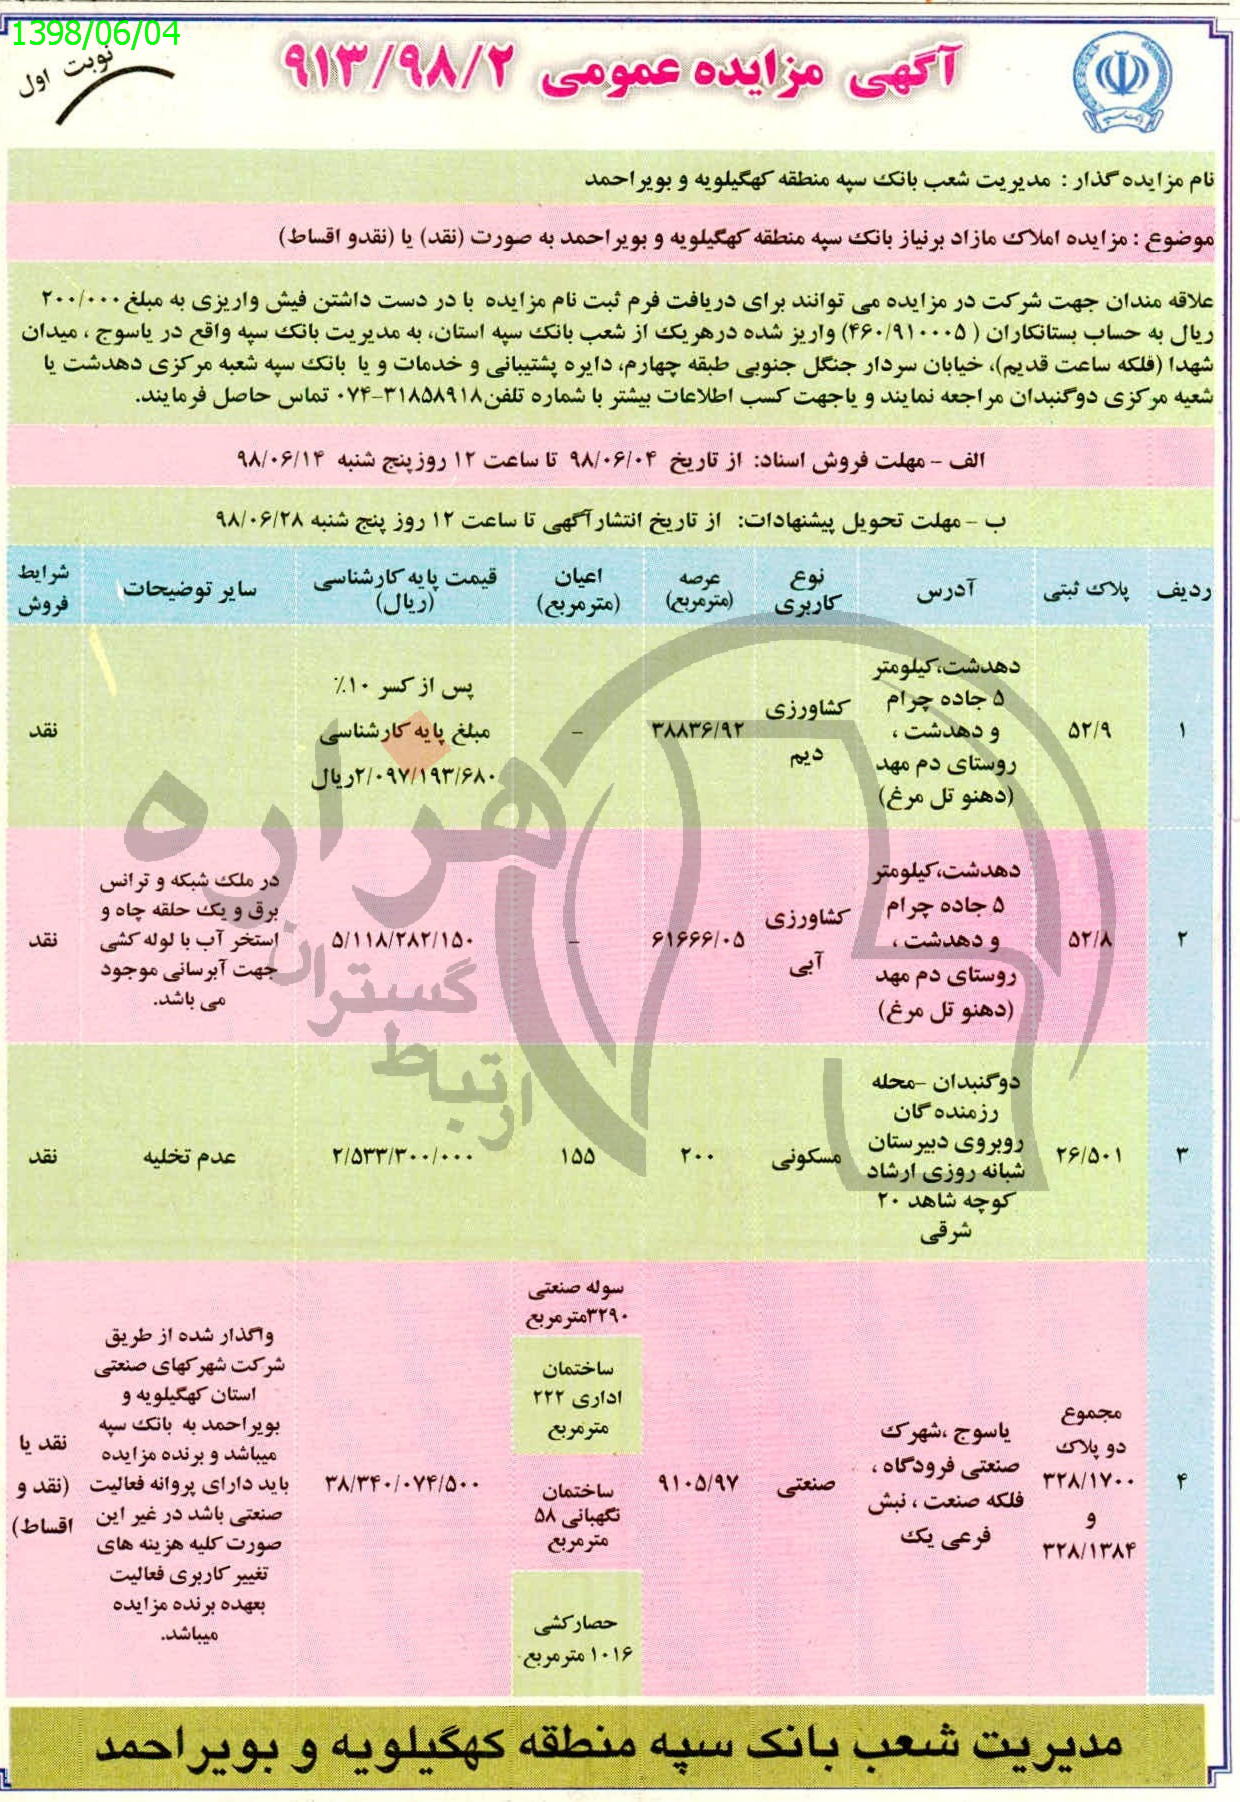 1398/06/04
آگهی مزایده عمومی ۹۱۳/۹۸/۲
نوبت اول
نام مزایده گذار : مدیریت شعب بانک سپه منطقه کهگیلویه و بویراحمد
موضوع : مزایده املاک مازاد برنیاز بانک سپه منطقه کهگیلویه و بویراحمد به صورت (نقد) یا (نقدو اقساط)
علاقه مندان جهت شرکت در مزایده می توانند برای دریافت فرم ثبت نام مزایده با در دست داشتن فیش واریزی به مبلغ ۲۰۰/۰۰۰
ریال به حساب بستانکاران ( ۴۶۰/۹۱۰۰۰۵) واریز شده درهریک از شعب بانک سپه استان، به مدیریت بانک سپه واقع در یاسوج ، میدان
شهدا (فلکه ساعت قدیم)، خیابان سردار جنگل جنوبی طبقه چهارم، دایره پشتیبانی و خدمات و یا بانک سپه شعبه مرکزی دهدشت یا
شعبه مرکزی دوگنبدان مراجعه نمایند و یاجهت کسب اطلاعات بیشتر با شماره تلفن۳۱۸۵۸۹۱۸-۰۷۴ تماس حاصل فرمایند.
الف - مهلت فروش اسناد: از تاریخ ۹۸/۰۶/۰۴ تا ساعت ۱۲ روزپنج شنبه ۹۸/۰۶/۱۴
ب - مهلت تحویل پیشنهادات: از تاریخ انتشارآگهی تا ساعت ۱۲ روز پنج شنبه ۹۸/۰۶/۲۸
ردیف
پلاک ثبتی
آدرس
نوع
کاربری
عرصه
(مترمربع)
اعیان
(مترمربع)
قیمت پایه کارشناسی
(ریال)
سایر توضیحات
شرایط
فروش
۱
۵۲/۹
دهدشت،کیلومتر
۵ جاده چرام
و دهدشت ،
روستای دم مهد
(دهنو تل مرغ)
کشاورزی
دیم
۳۸۸۳۶/۹۲
-
پس از کسر ۱۰٪
مبلغ پایه کارشناسی
۲/۰۹۷/۱۹۳/۶۸۰ریال
نقد
۲
۵۲/۸
دهدشت،کیلومتر
۵ جاده چرام
و دهدشت ،
روستای دم مهد
(دهنو تل مرغ)
کشاورزی
آبی
۶۱۶۶۶/۰۵
-
۵/۱۱۸/۲۸۲/۱۵۰
در ملک شبکه و ترانس
برق و یک حلقه چاه و
استخر آب با لوله کشی
جهت آبرسانی موجود
می باشد.
نقد
۳
۲۶/۵۰۱
دوگنبدان -محله
رزمنده گان
روبروی دبیرستان
شبانه روزی ارشاد
کوچه شاهد ۲۰
شرقی
مسکونی
۲۰۰
۱۵۵
۲/۵۳۳/۳۰۰/۰۰۰
عدم تخلیه
نقد
۴
مجموع
دو پلاک
۳۲۸/۱۷۰۰
و
۳۲۸/۱۳۸۴
یاسوج ،شهرک
صنعتی فرودگاه ،
فلکه صنعت ، نبش
فرعی یک
صنعتی
۹۱۰۵/۹۷
سوله صنعتی
۳۲۹۰مترمربع
ساختمان
اداری ۲۲۲
مترمربع
ساختمان
نگهبانی ۵۸
مترمربع
حصارکشی
۱۰۱۶ مترمربع
۳۸/۳۴۰/۰۷۴/۵۰۰
واگذار شده از طریق
شرکت شهرکهای صنعتی
استان کهگیلویه و
بویراحمد به بانک سپه
میباشد و برنده مزایده
باید دارای پروانه فعالیت
صنعتی باشد در غیر این
صورت کلیه هزینه های
تغییر کاربری فعالیت
بعهده برنده مزایده
میباشد.
نقد یا
(نقد و
اقساط)
هزاره
گستران
ارتباط
مدیریت شعب بانک سپه منطقه کهگیلویه و بویراحمد